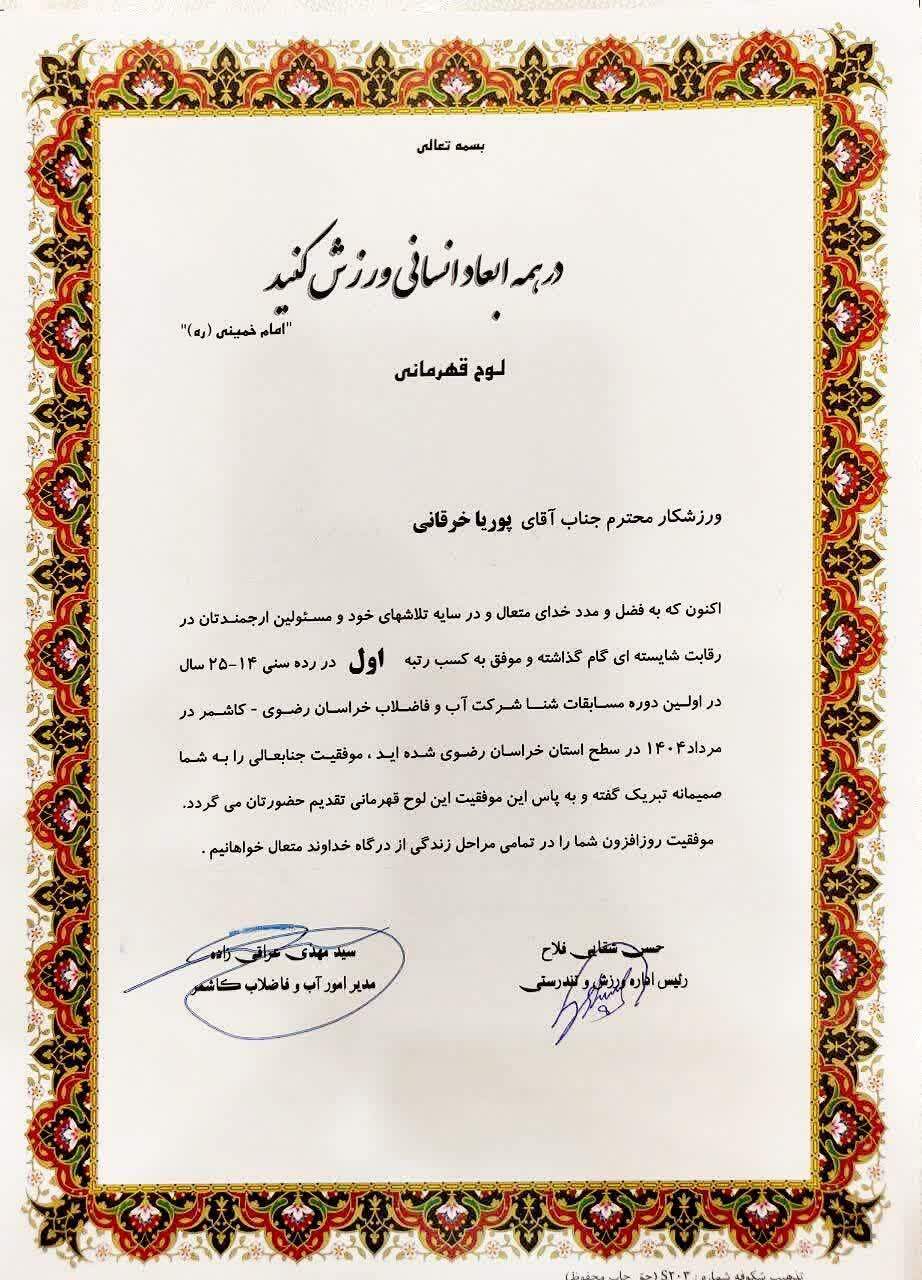 بسمه تعالی
در همه ابعاد انسانی ورزش کنید
"امام خمینی (ره)"
لوح قهرمانی
ورزشکار محترم جناب آقای پوریا خرقانی
اکنون که به فضل و مدد خدای متعال و در سایه تلاشهای خود و مسئولین ارجمندتان در
رقابت شایسته ای گام گذاشته و موفق به کسب رتبه اول در رده سنی ۱۴-۲۵ سال
در اولین دوره مسابقات شنا شرکت آب و فاضلاب خراسان رضوی - کاشمر در
مرداد۱۴۰۴ در سطح استان خراسان رضوی شده اید ، موفقیت جنابعالی را به شما
صمیمانه تبریک گفته و به پاس این موفقیت این لوح قهرمانی تقدیم حضورتان می گردد.
موفقیت روزافزون شما را در تمامی مراحل زندگی از درگاه خداوند متعال خواهانیم .
حسن شقایی فلاح
رئیس اداره ورزش و تندرستی
سید مهدی عراقی زاده
مدیر امور آب و فاضلاب کاشمر
تذهیب شکوفه شماره: S۲۰۳ (حق چاپ محفوظ)